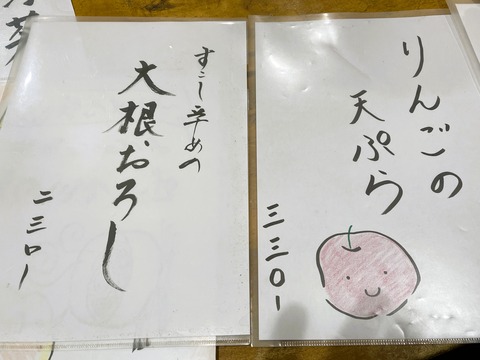 りんごの
天ぷら
三三〇-
すこし辛めの
大根おろし
二三〇-